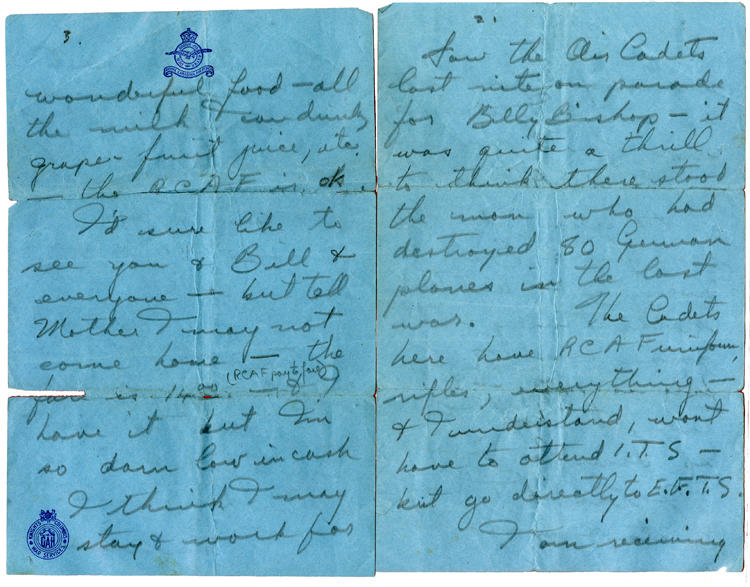 2.
Saw the Air Cadets
last nite on parade
for Billy Bishop - it
was quite a thrill
to think there stood
the man who had
destroyed 80 German
planes in the last
war. The Cadets
here have RCAF uniform,
rifles, everything -
& I understand, wont
have to attend I.T.S -
but go directly to E.F.T.S.
I am receiving
3.
wonderful food - all
the milk I can drink,
grape fruit juice, etc.
- the RCAF is ok.
I'd sure like to
see you & Bill &
everyone - but tell
Mother I may not
come home - the
(RCAF pay fare)
fare is 14.00 -
have it but I'm
so darn low in cash
I think I may
stay & work for
KNIGHTS OF COLUMBUS
WAR SERVICES